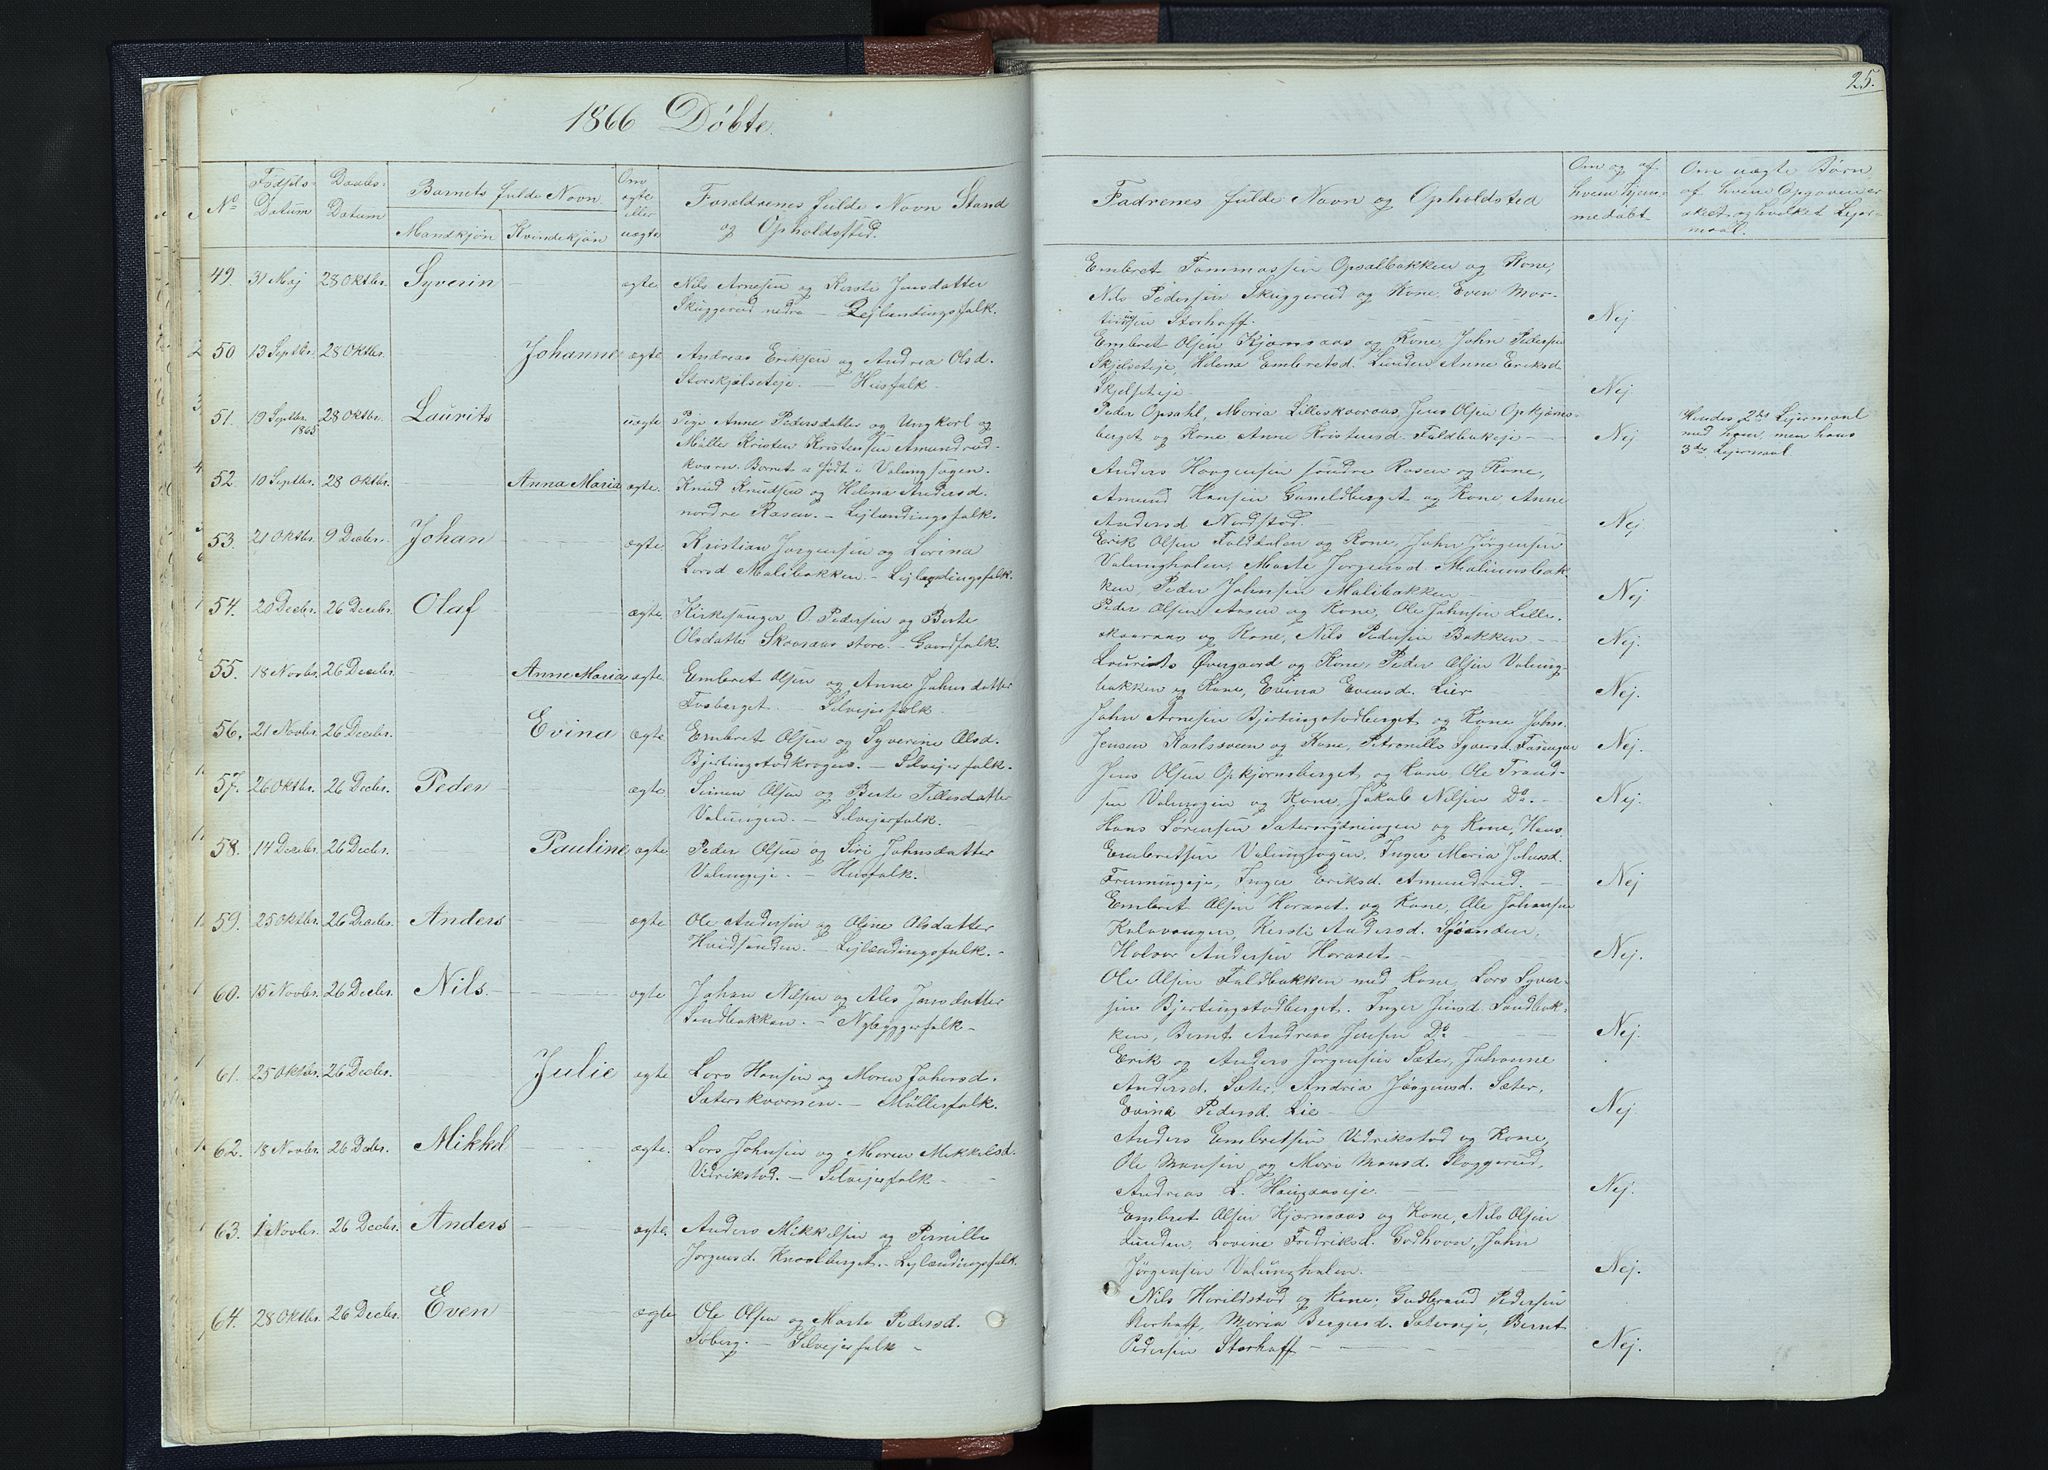 1866 Döbte.
25.
No
Födsels-
Datum
Daabs-
Datum
Barnets fulde Navn
Mandkjön
Kvindekjön
Om
ægte
eller
uægte
Forældrenes fulde Navn Stand
og Opholdssted.
Fadrenes fulde Navn og Opholdsted
Om og af
hvem hjem-
medöbt
Om uægte Börn,
af hvem Opgaven er
sket, og hvilket Lejer-
maal.
49. 31 Maj 28 Oktbr. Syverin ægte Nils Arnesen og Kersti Jensdatter
Skuggerud nedre — Lejlændingsfolk.
Embret Tommassen Opsalbakken og Kone,
Nils Pedersen Skuggerud og Kone, Even Mor-
tinusen Storhoff. Nej
50 13 Septbr. 28 Oktbr. Johanne ægte Andreas Eriksen og Andrea Olsd.
Storskjelseteje. — Husfolk
Embret Olsen Kjærnsaas og Kone, John Pedersen
Skjelseteje, Helena Embretsd. Lunden Anne Eriksd
Skjelseteje Nej
51. 19 Septbr. 1865 28 Oktbr. Laurits uægte Pige Anne Pedersdatter og Ungkarl og
Møller Kristen Kristensen Amundrud-
kværn. Barnet er födt i Valungsögen.
Peder Opsahl, Maria Lilleskaaraas, Jens Olsen Opkjærns-
berget og Kone Anne Kristensd. Faldbakeje — Nej
Hendes 2det Lejermaal
med ham, men hans
3die Lejermaal.
52. 10 Septbr. 28 Oktbr. Anna Maria ægte. Knud Knudsen og Helena Andersd.
nordre Rasen. — Lejlændingsfolk.
Anders Haagensen söndre Rasen og Kone,
Amund Hansen Gameldberget og Kone Anne
Andersd. Nordstod. Nej
53. 21 Oktbr. 9 Decbr. Johan ægte. Kristian Jørgensen og Lovina
Larsd Malibakken. — Lejlændingsfolk.
Erik Olsen Falddalen og Kone, John Jörgensen
Valunghalen, Marte Jorgensd. Maliunsbak-
ken, Peder Johnsen Malibakken. Nej
54. 20 Decbr. 26 Decbr. Olaf ægte. Kirkesanger O. Pedersen og Berte
Olsdatter Skaaraas store. — Gaardfolk.
Peder Olsen Aasen og Kone, Ole Johnsen Lille-
skaaraas og Kone, Nils Pedersen Bakken — Nej.
55. 18 Novbr. 26 Decbr. Anne Maria ægte. Embret Olsen og Anne Johnsdatter
Fosberget. — Selvejerfolk
Laurits Øvergaard og Kone, Peder Olsen Valung-
bakken og Kone, Evina Evensd. Lier Nej.
56. 21 Novbr. 26 Decbr. Evina ægte. Embret Olsen og Syverine Olsd.
Bjertingstodkrogen. — Selvejerfolk.
John Arnesen Bjertingstodberget og Kone, John
Jensen Karlssveen og Kone, Petronille Syversd. Nej.
57. 26 Oktbr. 26 Decbr. Peder ægte. Simen Olsen og Berte Tillesdatter
Valungen. — Selvejerfolk.
Jens Olsen Opkjærnsberget og Kone, Ole Trond-
sen Valungen og Kone, Jakob Nilsen Do. — Nej
58. 14 Decbr. 26 Decbr. Pauline ægte. Peder Olsen og Siri Johnsdatter
Valungeje. — Husfolk.
Hans Sörensen Sæterrydningen og Kone, Hans
Embretsen Valungsagen, Inger Maria Johnsd.
Frenningeje, Inger Eriksd. Amundrud. — Nej
59. 25 Oktbr. 26 Decbr. Anders ægte Ole Andersen og Oline Olsdatter
Hvidsanden. — Lejlændingsfolk. —
Embret Olsen Haraset og Kone, Ole Johansen
Kolavangen, Kersti Andersd.
Halvor Andersen Haraset — Nej.
60. 15 Novbr. 26 Decbr. Nils ægte Johan Nilsen og Ales Jensdatter
Sandbakken. — Nybyggerfolk —
Ole Olsen Faldbakken med Kone, Lars Syver-
sen Bjertingstodberget. Inger Jensd. Sandbak-
ken, Bernt Andreas Jensen Do. Nej
61. 25 Oktbr. 26 Decbr. Julie ægte Lars Hansen og Maren Johansd.
Sæterskværnen. — Møllerfolk.
Erik og Anders Jörgensen Sæter, Johanne
Andersd. Sæter, Andria Jörgensd. Sæter,
Evina Pedersd. Lie — Nej
62. 18 Novbr. 26 Decbr. Mikkel ægte. Lars Johnsen og Maren Mikkelsd.
Vidrikstod. — Selvejerfolk —
Anders Embretsen Vidrikstod og Kone,
Ole Monsen og Mari Monsd. Sloggerud,
Andreas L. Haugaaseje. Nej.
63. 1 Novbr. 26 Decbr. Anders ægte. Anders Mikkelsen og Pernille
Jorgensd. Knaalberget. — Lejlændingsfolk.
Embret Olsen Kjærnsaas og Kone, Nils Olsen
Lunden, Lovine Fredriksd. Godhavn, John
Jörgensen Valunghalen. Nej.
64. 28 Oktbr. 26 Decbr. Even ægte Ole Olsen og Marte Pedersd.
Soberg. — Selvejerfolk —
Nils Harildstod og Kone, Gudbrand Pedersen
Storhoff, Maria Bergersd. Sæterseje, Bernt
Pedersen Storhoff — Nej.